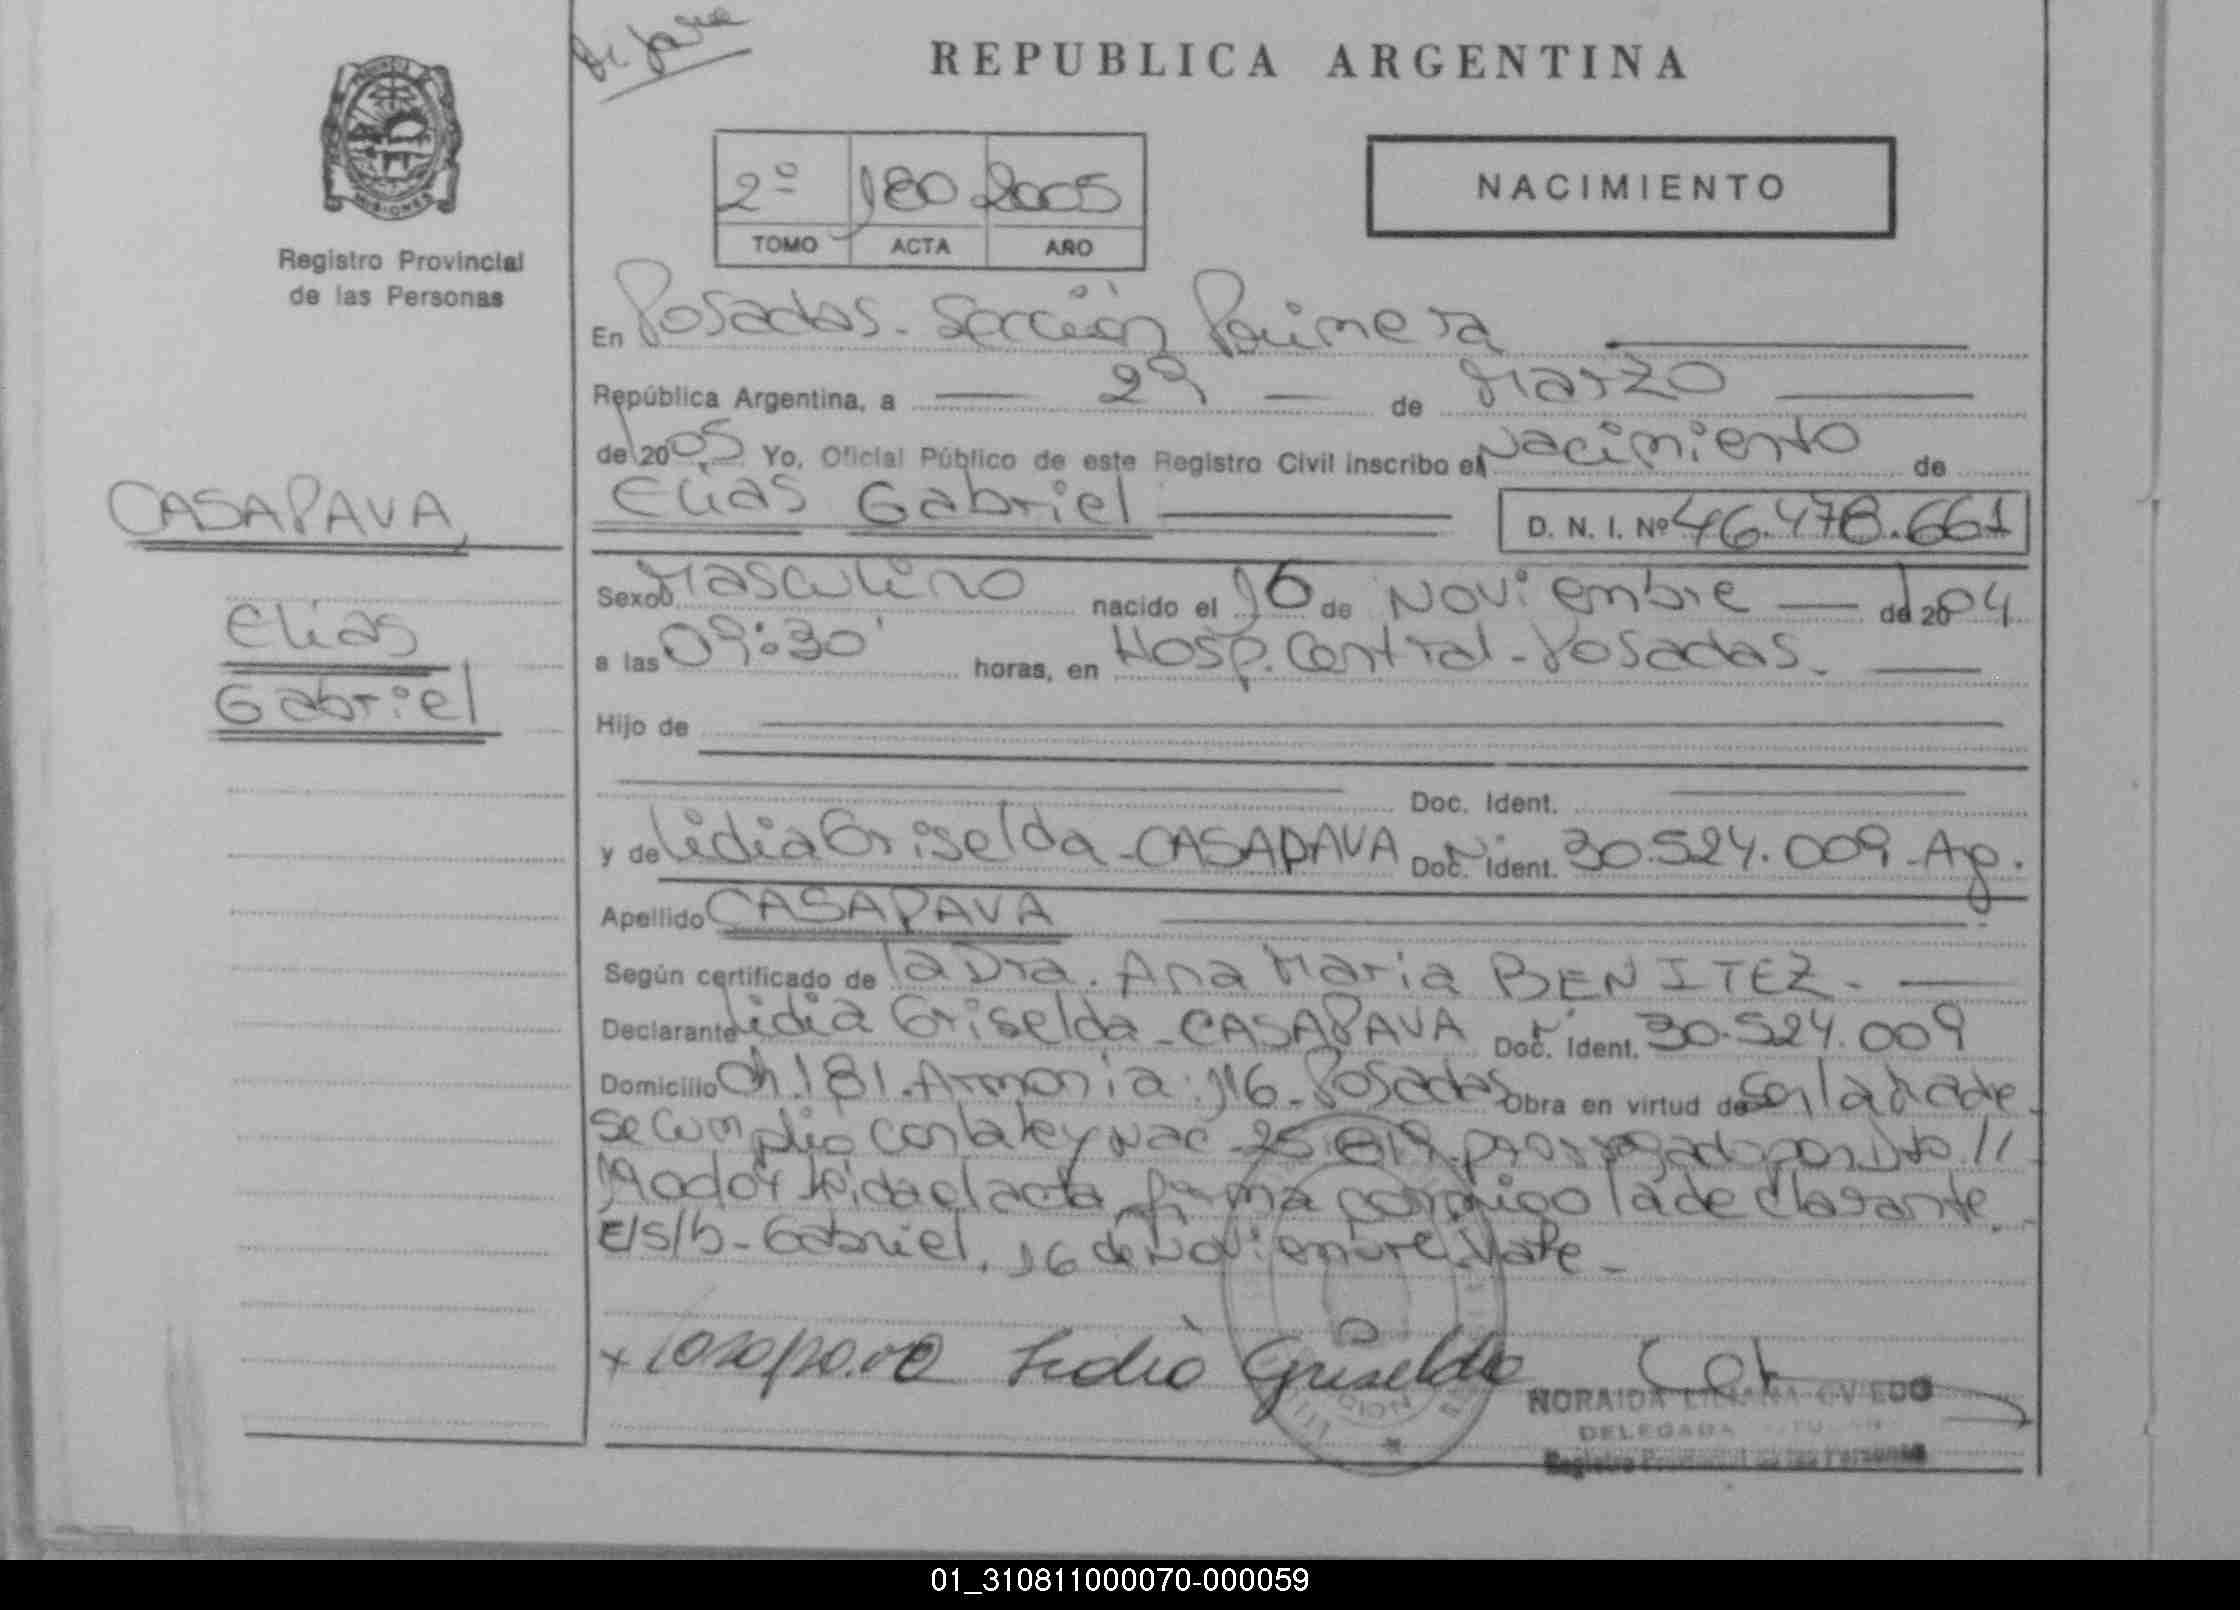 REPUBLICA ARGENTINA
MISIONES
Registro Provincial
de las Personas
2º 180 2005
TOMO ACTA AÑO
NACIMIENTO
En Posadas. Sección Primera
República Argentina, a 29 de Marzo
de 2005 Yo, Oficial Público de este Registro Civil inscribo el Nacimiento de
CASAPAVA
Elias Gabriel D. N. I. Nº 46.478.661
Elias
Gabriel
Sexo Masculino nacido el 16 de Noviembre de 2004
a las 09:30' horas, en Hosp. Central - Posadas.
Hijo de
Doc. Ident.
y de Lidia Griselda - CASAPAVA Doc. Ident. 30.524.009 - Ag.
Apellido CASAPAVA
Según certificado de la Dra. Ana Maria BENITEZ.
Declarante Lidia Griselda - CASAPAVA Doc. Ident. 30.524.009
Domicilio Ch. 181. Armonia. 116 - Posadas Obra en virtud de Ser la Madre
Se Cumplio con la ley Nac. 25.819 prorrogado por Dto. //
Leida el acta firma conmigo la declarante.
E/S/b - Gabriel. 16 de Noviembre. Vale -
x Casapava Lidia Griselda
NORAIDA LILIANA OVIEDO
DELEGADA TITULAR
Registro Provincial de las Personas
01_310811000070-000059